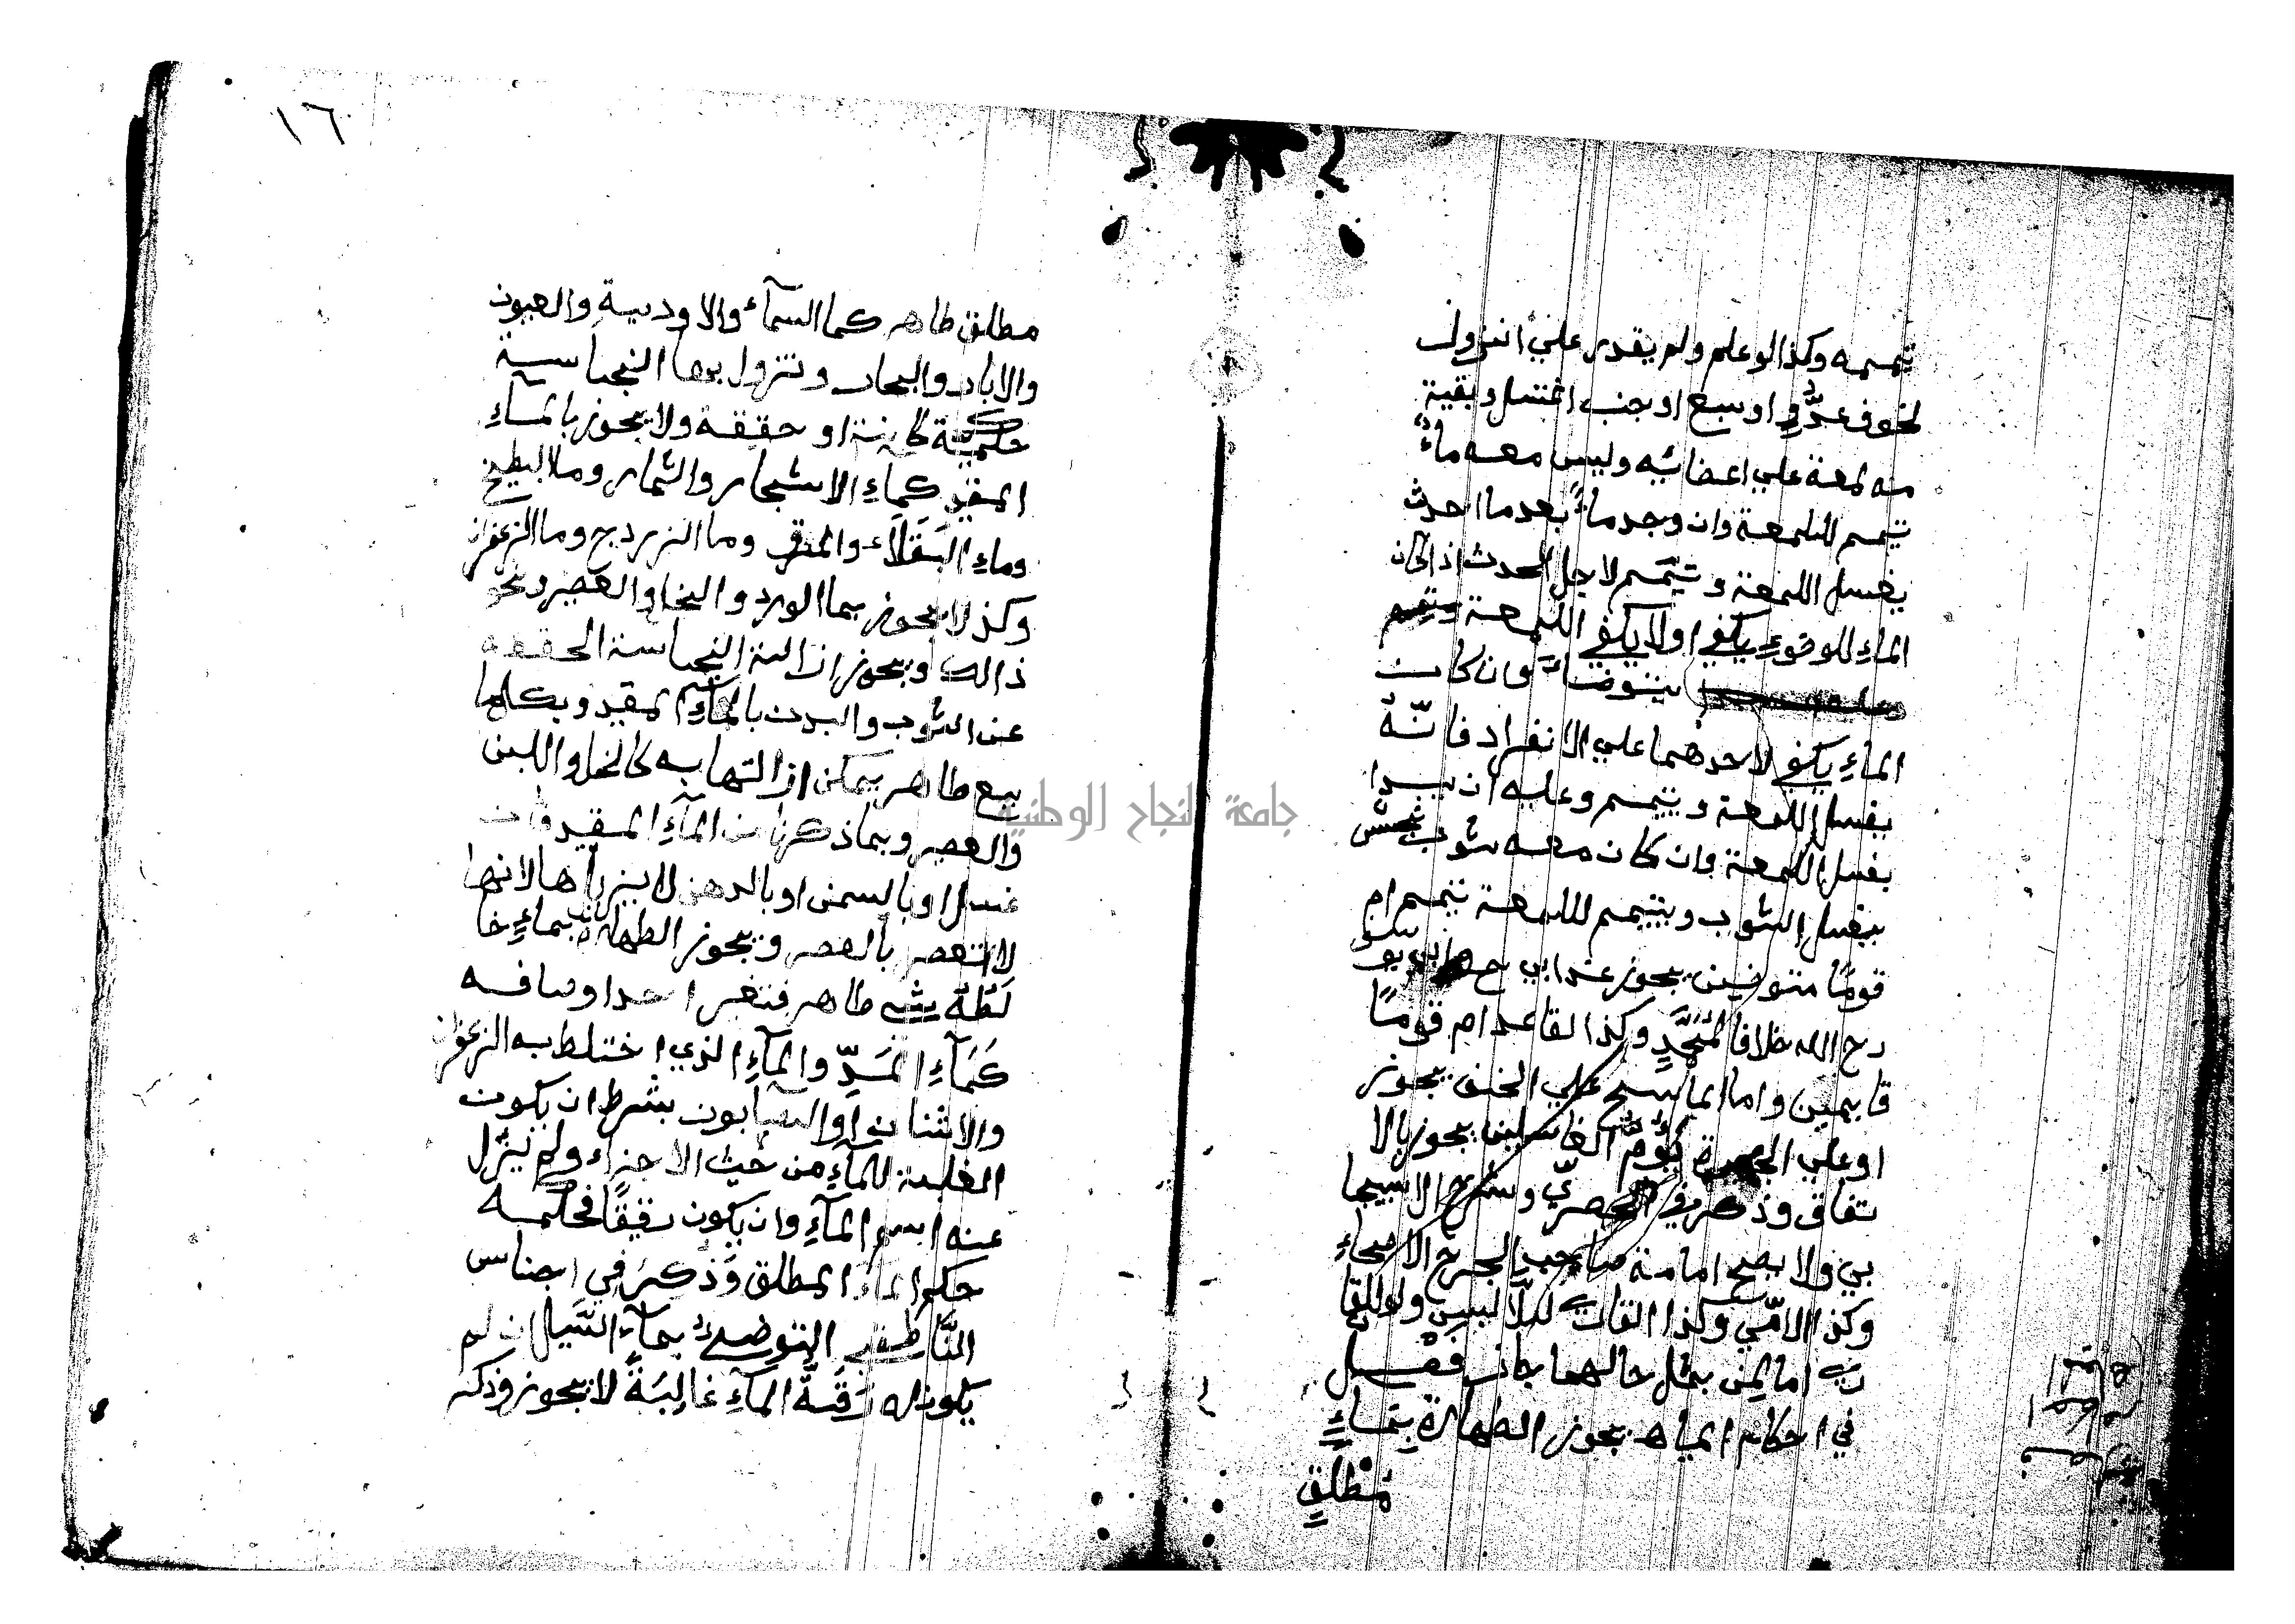 تيممه وكذا لو علم ولم يقدر علي النزول
لخوف عدوٍّ او سبع او جنب اغتسل وبقية
منه لمعة علي اعضائه وليس معه ماءٌ
تيمم للمعة وان وجد ماءً بعدما احدث
يغسل اللمعة وتيَمّم لاجل الحدث اذا كان
الماءِ للوضوءِ يكفي اولا يكفي اللمعة
يتوضأ وان كانت
الماءِ يكفي لاحدهما علي الانفراد فانّهُ
يغسل اللمعة ويتيمم وعليه ان يبدا
بغسل اللمعة وان كان معه ثوب نجس
يغسل الثوب ويتيمم لللمعة تيمم ام
قومًا متوضين يجوز عند ابي ح
رح الله خلافا لمُحمَّدٍ وكذا القاعد ام قومًا
قايمين واما الماسح علي الخف يجوز
او علي الجبيرة يَؤُمُّ الغاسلين يجوز بالا
تفاق وذكر في وشرح الاسبيجا
بي ولا يصح امامة صاحب الجرح الاصحاءِ
وكذا الامّي وكذا العارٍ للّابسين ولو القا
اما لمن بمثل حالهما جاز فصل
في احكام المياه يجوز الطهارة بِمَاءٍ
مُطْلَقٍ
١٦
مطلق طاهر كما السمآء والاودية والعيون
والابار والبحار وتزول بها النجاسة
حكمية كانت او حقيقة ولا يجوز بالمآءِ
المقيد كماءِ الاشجار والثمار وما البطيخ
وماءِ البَقَلّاء والمرق وما الزردج وما الزعفران
وكذ لا يجوز بما الورد والخل والعصير ونحو
ذالك ويجوز ازالة النجاسة الحقيقة
عن الثوب والبدن بالمآءِ المقيد وبكل ما
يع طاهر يمكن ازالتها به كالخل واللبن
والعصير وبما ذكرنا من المآءِ المقيد وان
غسل او بالسمن او بالدهن لا يزيلها لانها
لا تنعصر بالعصر ويجوز الطهارة بماءٍ خا
لَطَهُ شي طاهر فتغير احد اوصافه
كَمَآءِ المَدِّ والمآءِ الذي اختلط به الزعفران
والاشنان او الصابون بشرط ان يكون
الغلبة للمآءِ من حيث الاجزاء ولم يَزُل
عنه اسم المآءِ وان يكون رقيقًا فحكمه
حكم الماء المطلق وَذكَر في اجناس
النَّاطفي التوضئُ بمآء السّيل ان لم
يكون له رَقَّةُ المآءِ غَالِبَةً لا يجوز وذكر
جامعة النجاح الوطنية